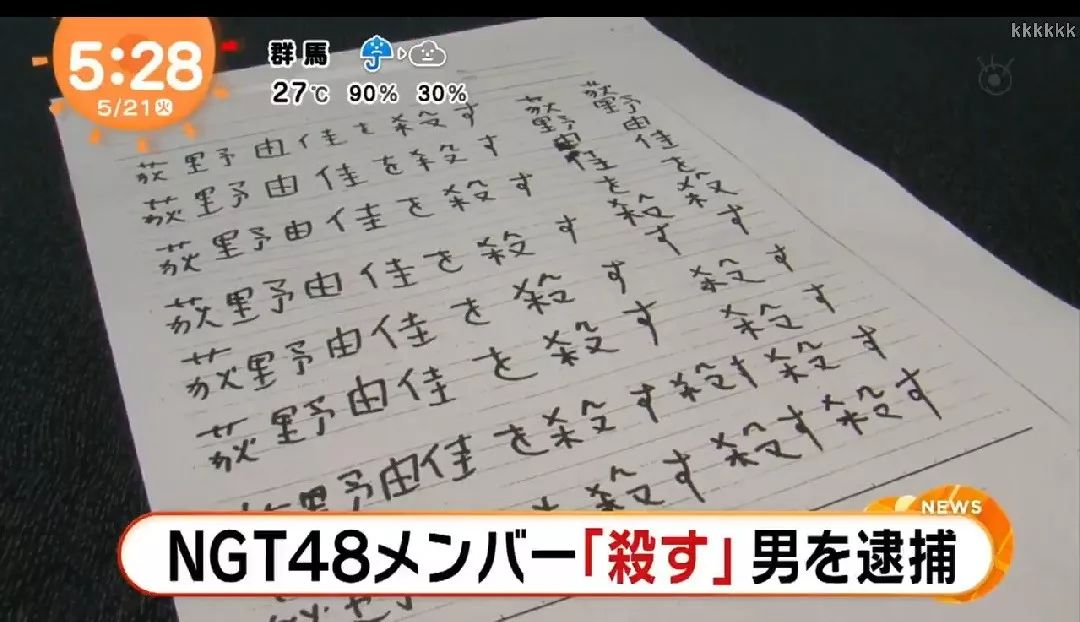 kkkkkk
5:28
5/21火
群馬
27℃ 90% 30%
荻野由佳を殺す
荻野由佳を殺す
荻野由佳を殺す
荻野由佳を殺す
荻野由佳を殺す
荻野由佳を殺す
荻野由佳を殺す殺す殺す
殺す殺す殺す
荻野由佳を殺す
荻野由佳を殺す
殺す
殺す
NEWS
NGT48メンバー「殺す」男を逮捕